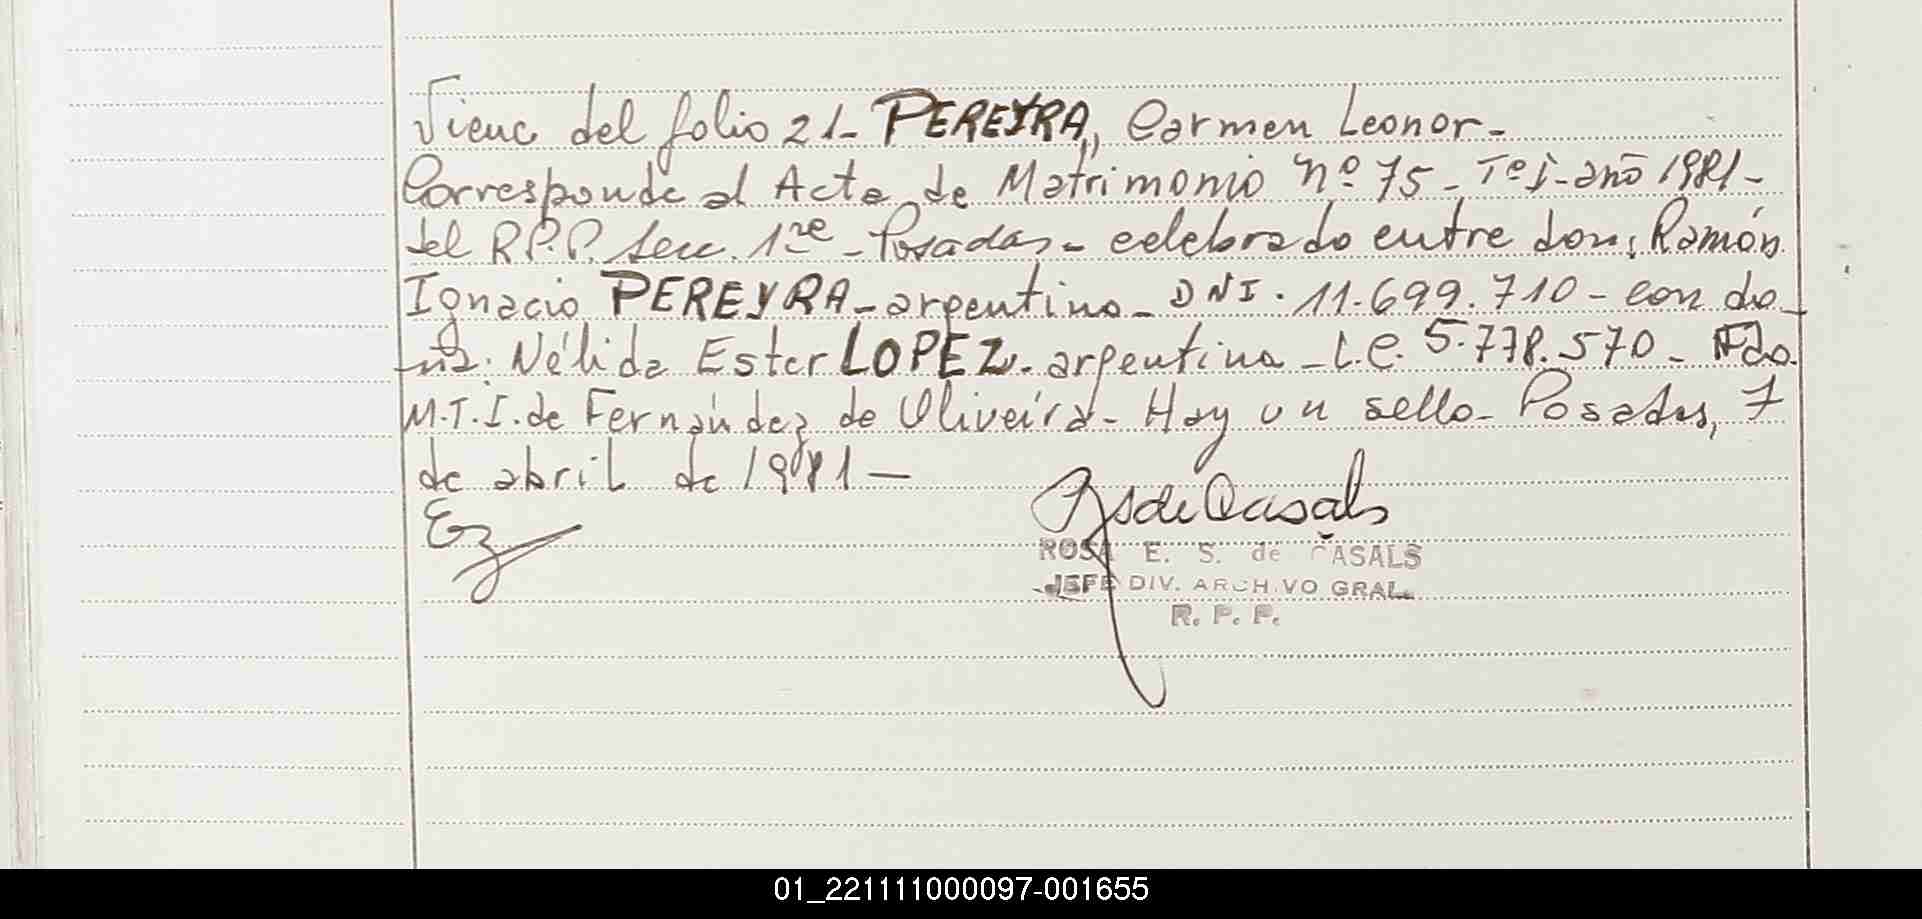 Viene del folio 21- PEREYRA, Carmen Leonor-
Corresponde al Acta de Matrimonio Nº 75 - Tº I - año 1981 -
del R.P.P. Secc. 1ra - Posadas - celebrado entre don: Ramón
Ignacio PEREYRA - argentino - DNI. 11.699.710 - con do-
ña: Nélida Ester LOPEZ - argentina - L.C. 5.778.570 - Fdo.
M.T.I. de Fernández de Oliveira - Hay un sello - Posadas, 7
de abril de 1981 -
ROSA E. S. de CASALS
JEFE DIV. ARCHIVO GRAL.
R. P. P.
01_221111000097-001655